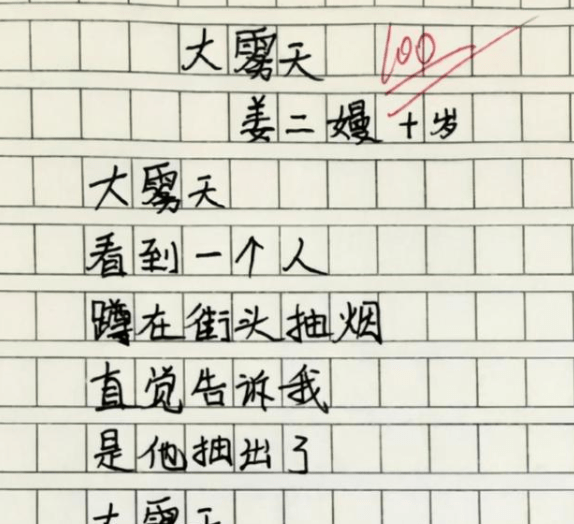 大雾天
100
姜二嫚 十岁
大雾天
看到一个人
蹲在街头抽烟
直觉告诉我
是他抽出了
大雾天